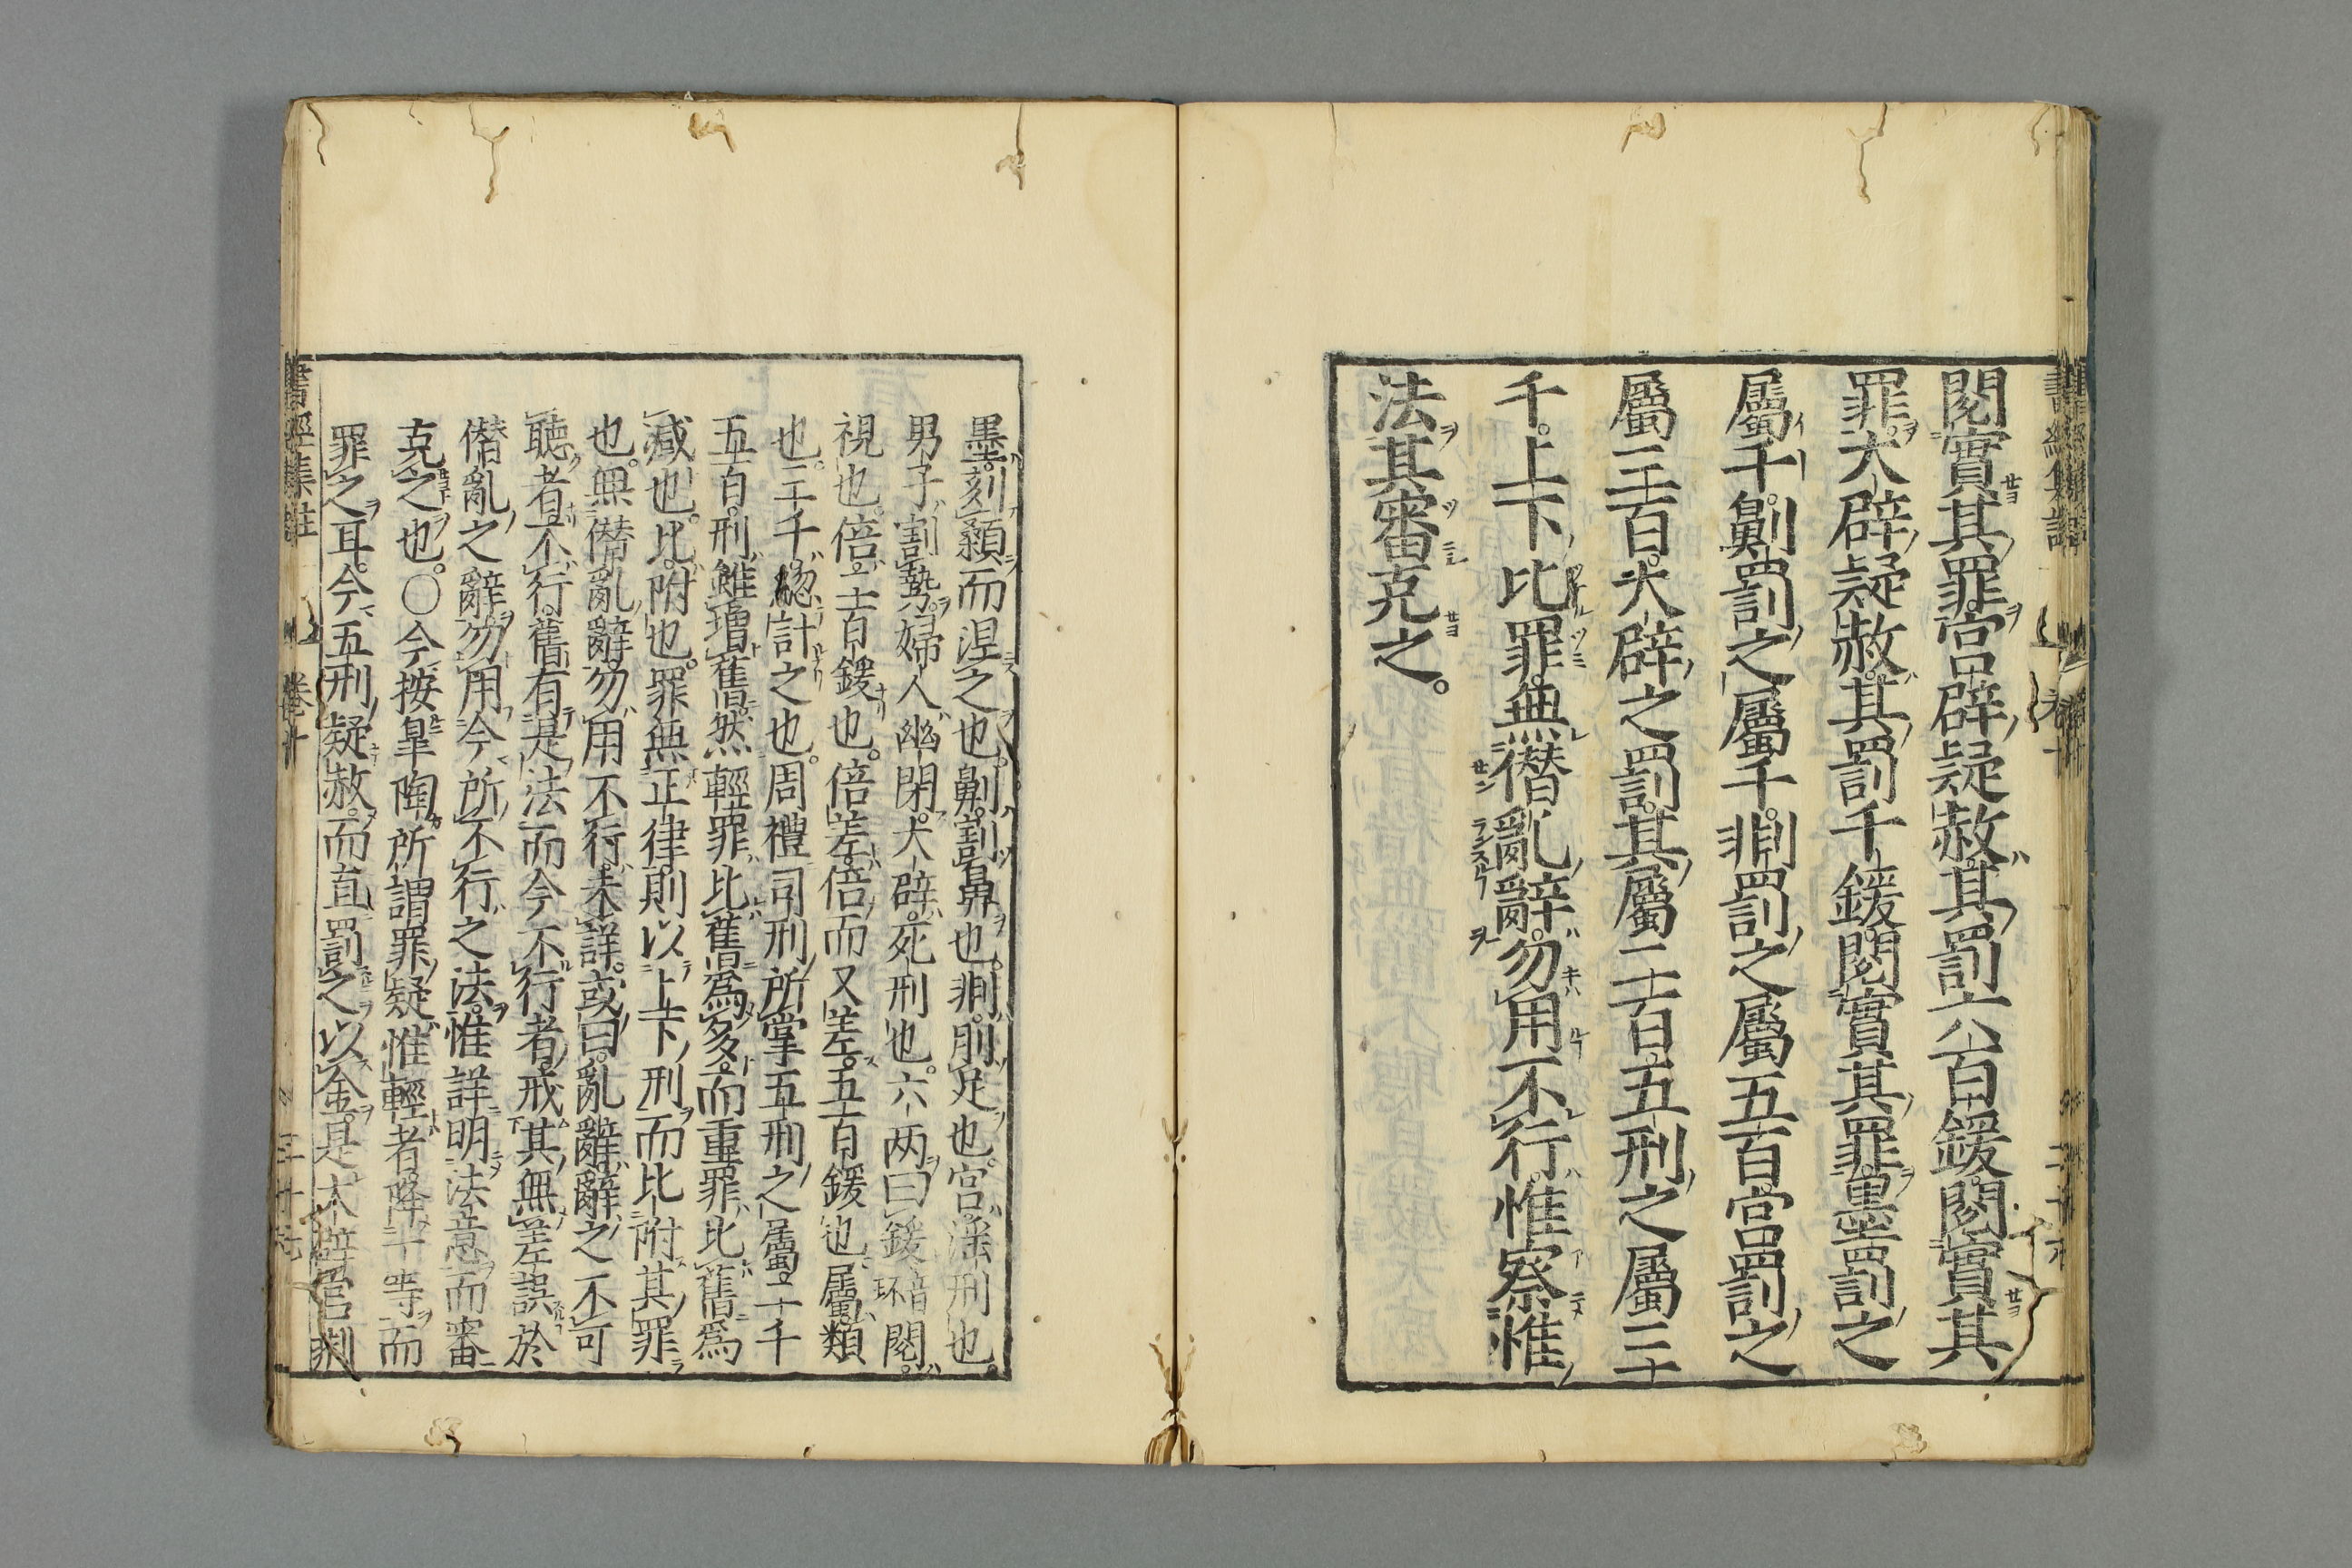 閱實其罪。宮辟疑赦。其罰六百鍰。閱實其
罪。大辟疑赦。其罰千鍰。閱實其罪。墨罰之
屬千。劓罰之屬千。剕罰之屬五百。宮罰之
屬三百。大辟之罰。其屬二百。五刑之屬三
千。上下比罪。無僭亂辭。勿用不行。惟察惟
法。其審克之。
墨。刻顙而涅之也。劓。割鼻也。剕。刖足也。宮。淫刑也。
男子割勢。婦人幽閉。大辟。死刑也。六兩曰鍰。閱。
視也。倍。二百鍰也。倍差。倍而又差。五百鍰也。屬。類
也。三千。總計之也。周禮司刑所掌五刑之屬二千
五百。刑雖增舊。然輕罪比舊爲多。而重罪比舊爲
減也。比。附也。罪無正律。則以上下刑而比附其罪
也。無僭亂辭。勿用不行。未詳。或曰。亂辭。辭之不可
聽者。不行。舊有是法。而今不行者。戒其無差誤於
僭亂之辭。勿用今所不行之法。惟詳明法意。而審
克之也。○今按皐陶所謂罪疑惟輕者。降一等而
罪之耳。今五刑疑赦。而直罰之以金。是大辟宮剕
書經集註 卷十